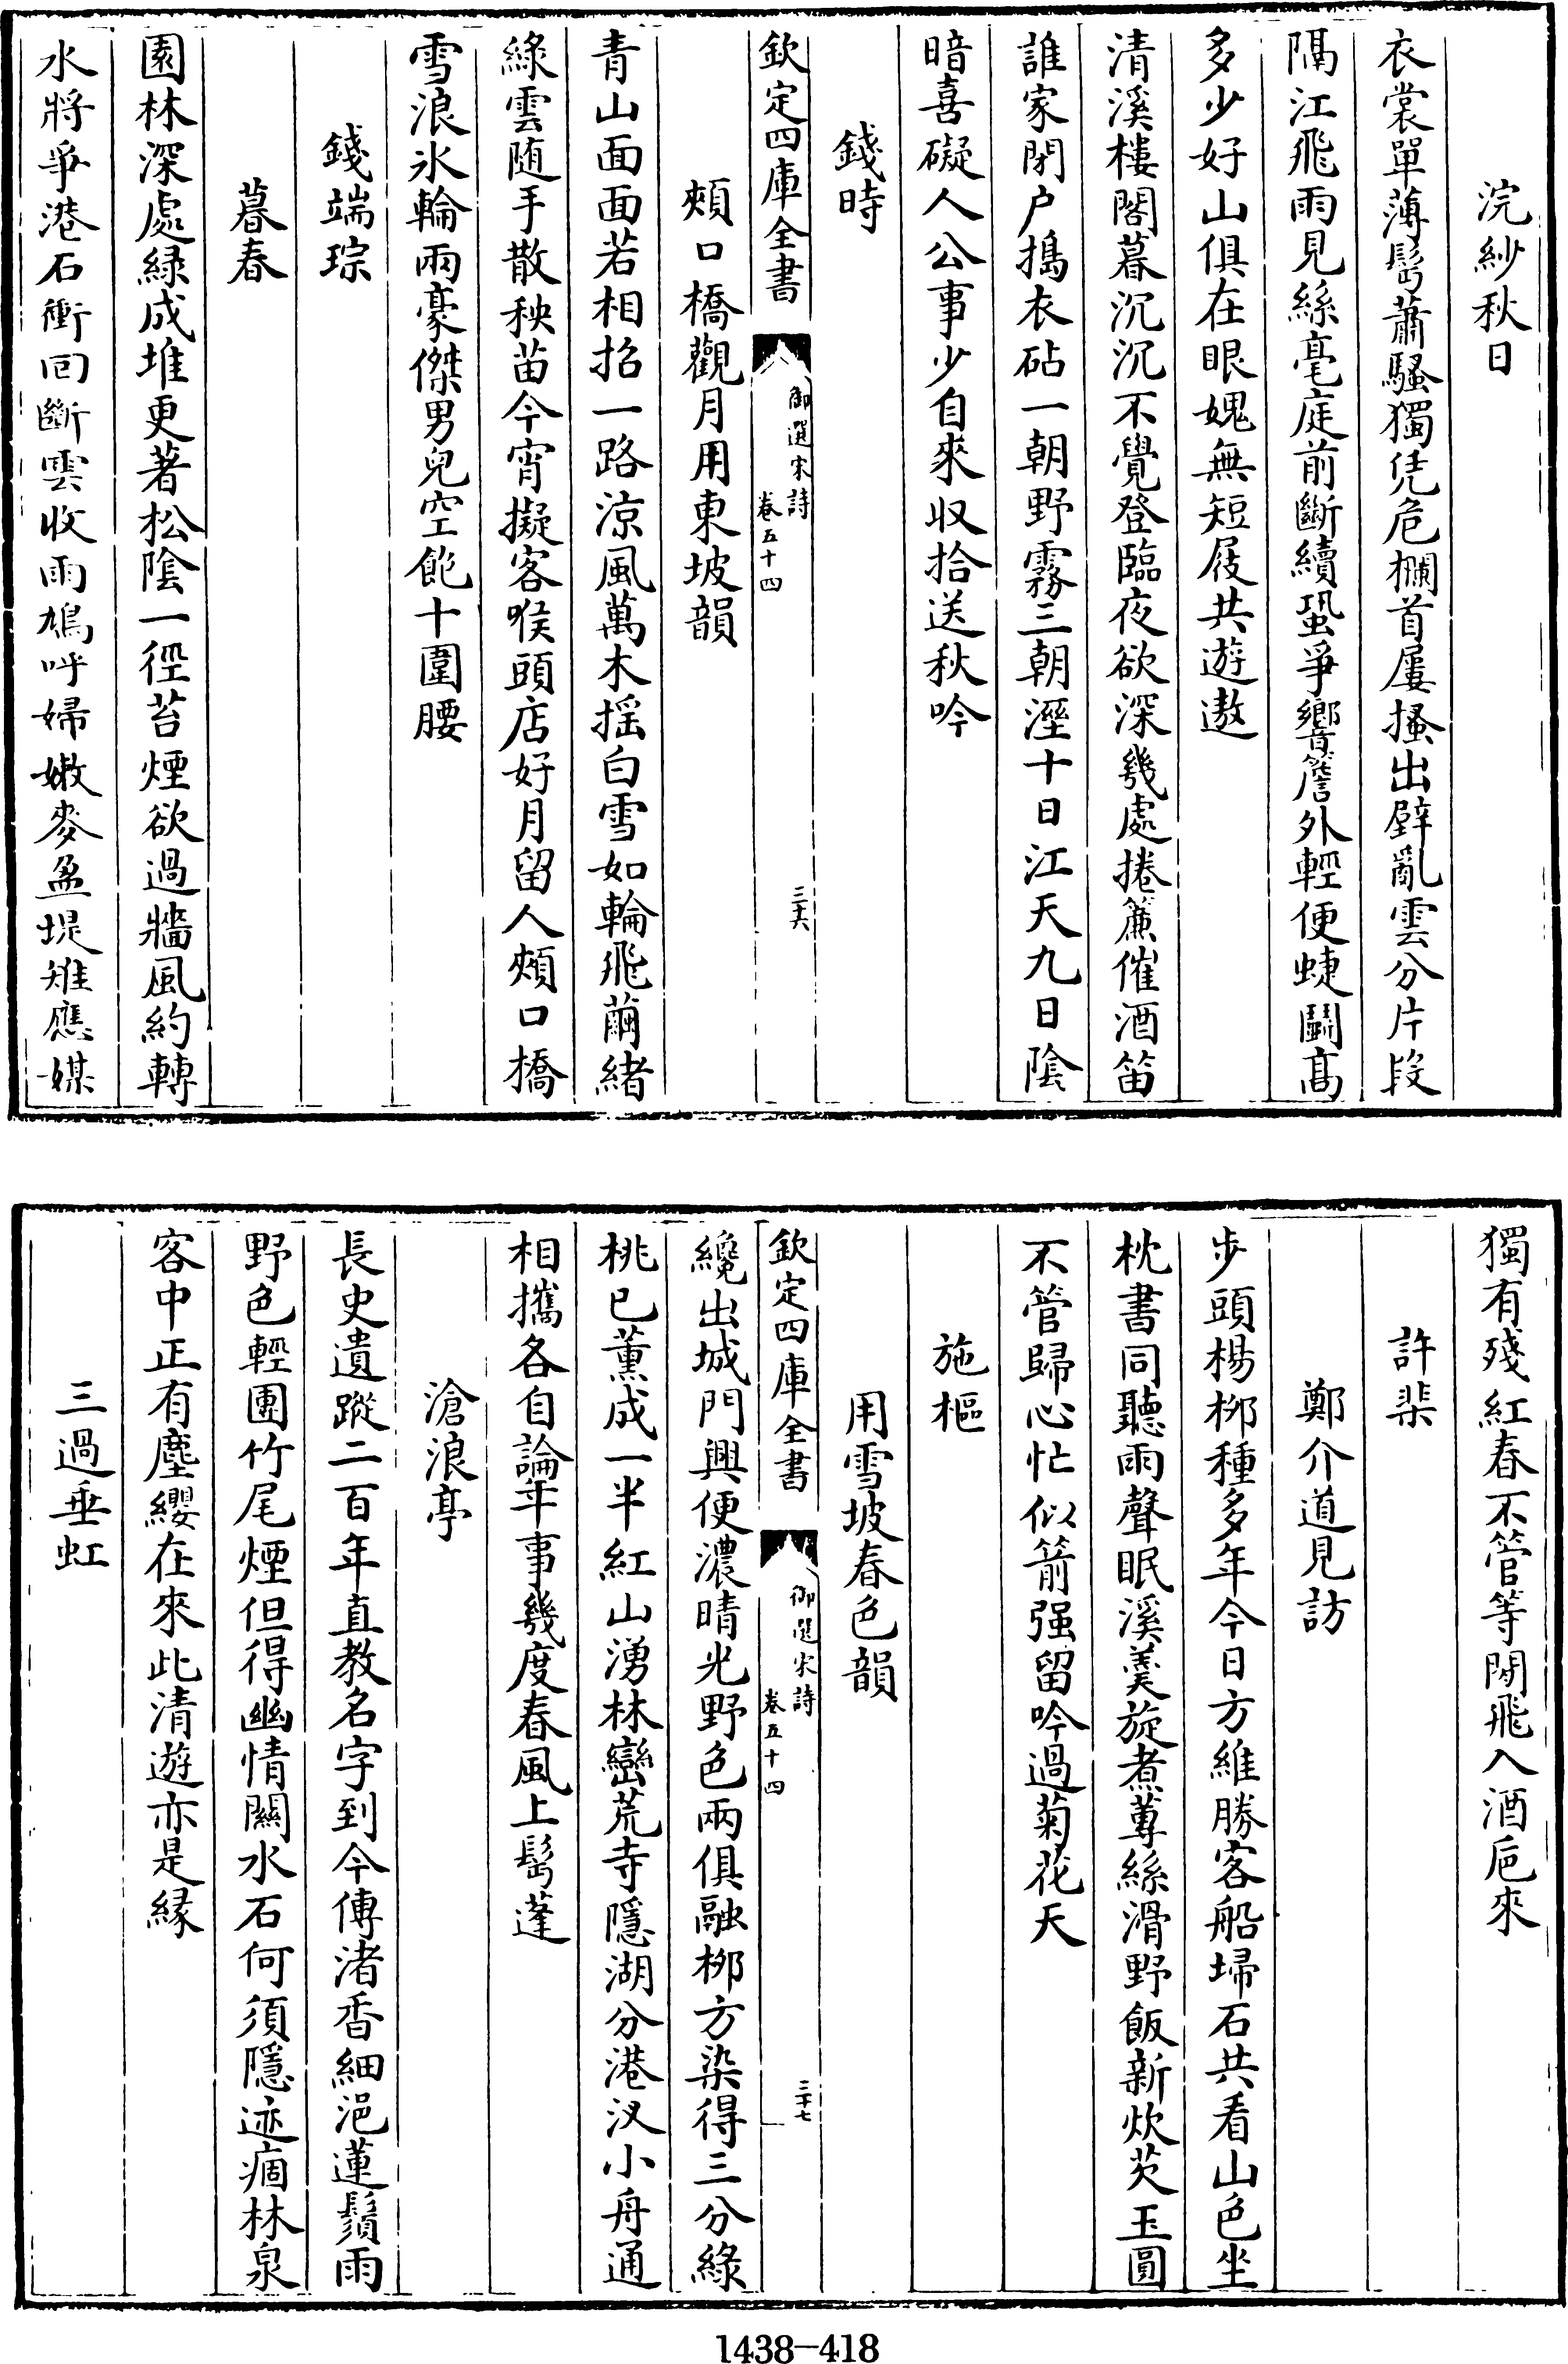 浣紗秋日
衣裳單薄髩蕭騷獨凭危欄首屢搔出壁亂雲分片段
隔江飛雨見絲毫庭前斷續蛩爭響簷外輕便蜨鬭髙
多少好山俱在眼媿無短屐共遊遨
清溪樓閣暮沉沉不覺登臨夜欲深幾處捲簾催酒笛
誰家閉户搗衣砧一朝野霧三朝溼十日江天九日陰
暗喜礙人公事少自來收拾送秋吟
錢時
欽定四庫全書
御選宋詩
卷五十四
三十六
頰口橋觀月用東坡韻
青山面面若相招一路涼風萬木摇白雪如輪飛繭緒
綠雲随手散秧苗今宵擬客喉頭店好月留人頰口橋
雪浪氷輪兩豪傑男兒空飽十圍腰
錢端琮
暮春
園林深處緑成堆更著松陰一徑苔煙欲過牆風約轉
水將爭港石衝囘斷雲收雨鳩呼婦嫩麥盈堤雉應媒
獨有殘紅春不管等閒飛入酒巵來
許棐
鄭介道見訪
步頭楊栁種多年今日方維勝客船埽石共看山色坐
枕書同聽雨聲眠溪羹旋煮蓴絲滑野飯新炊芡玉圓
不管歸心忙似箭强留吟過菊花天
施樞
用雪坡春色韻
欽定四庫全書
御選宋詩
卷五十四
三十七
纔出城門興便濃晴光野色兩俱融栁方染得三分綠
桃已薰成一半紅山湧林巒荒寺隱湖分港汊小舟通
相攜各自論年事幾度春風上髩蓬
滄浪亭
長史遺蹤二百年直教名字到今傳渚香細浥蓮鬚雨
野色輕團竹尾煙但得幽情闗水石何須隱迹痼林泉
客中正有塵纓在來此清遊亦是縁
三過垂虹
1438—418